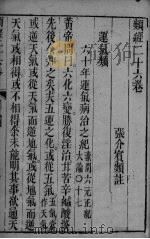 類經二十六卷
張介賓類註
運氣類
六十年運氣病治之紀 素問六元正紀大論○十七
黃帝問曰六化六變勝復淫治甘苦辛鹹酸淡
先後余知之矣夫五運之化或從五氣或逆天氣
或逆天氣或從天氣而逆地氣或從地氣而逆
天氣或相得或不相得余未能明其事欲通天